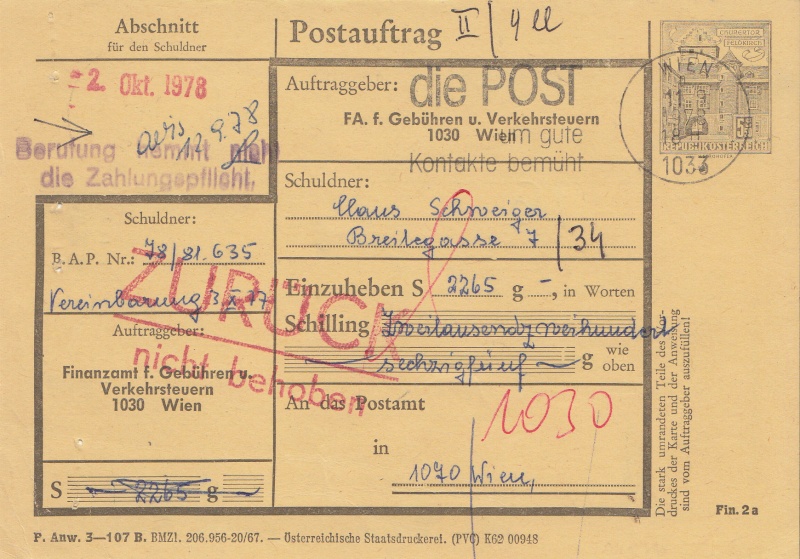 Abschnitt
für den Schuldner
2. Okt. 1978
12.9.78
Berufung hemmt nicht
die Zahlungspflicht.
Schuldner:
B.A.P. Nr.: 78/81.635
Vereinbarung 3/X.77
Auftraggeber:
Finanzamt f. Gebühren u.
Verkehrsteuern
1030 Wien
S 2265 g –
Postauftrag II/4
Auftraggeber:
die POST
FA. f. Gebühren u. Verkehrsteuern
1030 Wien
um gute
Kontakte bemüht
Schuldner:
Claus Schweiger
Breitegasse 7 /34
Einzuheben S 2265 g –, in Worten
Schilling Zweitausendzweihundert
sechzigfünf g wie oben
ZURÜCK
nicht behoben
An das Postamt
1030
in
1070 Wien,
CHURERTOR
FELDKIRCH
REPUBLIK ÖSTERREICH
WIEN
1033
Die stark umrandeten Teile des Vor-
druckes der Karte und der Anweisung
sind vom Auftraggeber auszufüllen!
Fin. 2a
P. Anw. 3—107 B. BMZl. 206.956-20/67. — Österreichische Staatsdruckerei. (PVC) K62 00948